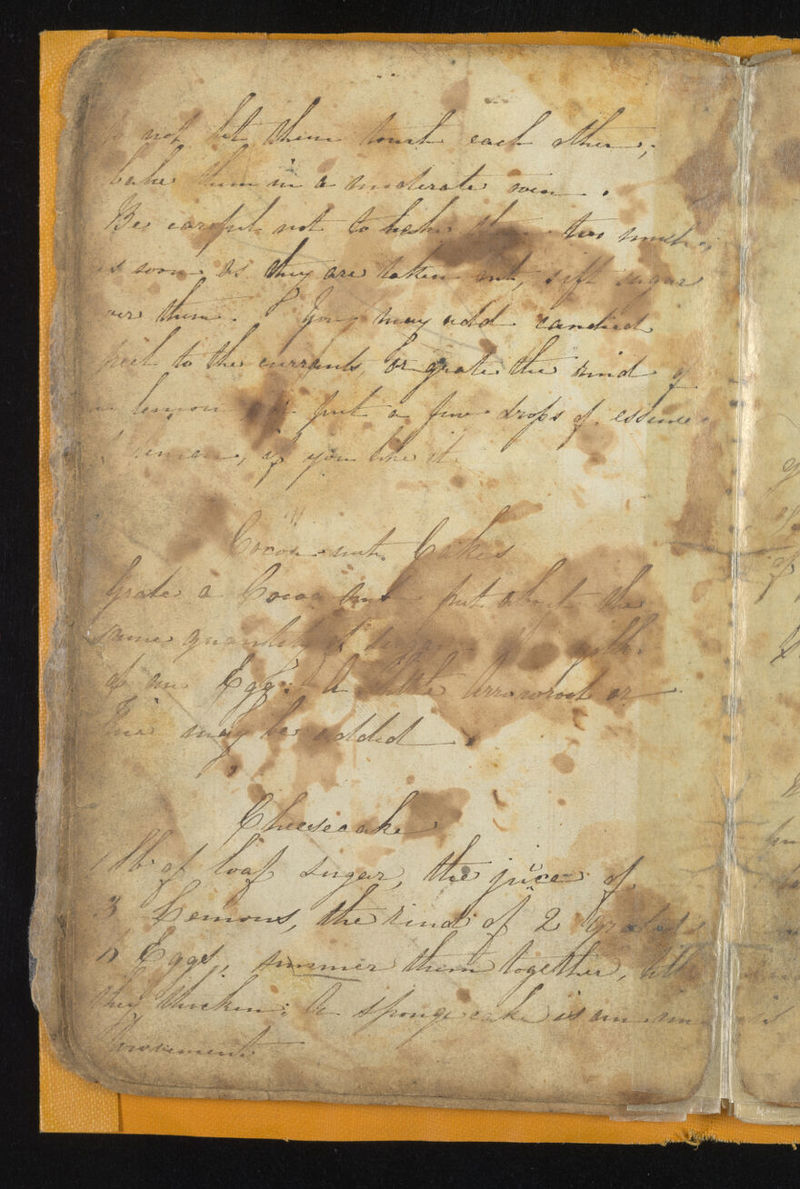 not let them touch each other;
bake them in a moderate oven.
Be careful not to bake them too much;
as soon as they are taken out, sift sugar
over them. You may add candied
peel to the currants, or grate the rind of
a lemon put a few drops of essence
, if you like it.
Cocoa nut Cakes
Grate a Cocoa nut put about the
same quantity of
of an Egg: A little Arrowroot or
may be added.
Cheesecake
1 lb of loaf sugar, the juice of
3 Lemons, the rind of 2 grated
Eggs, simmer them together, till
they thicken: A sponge cake is an im
provement.